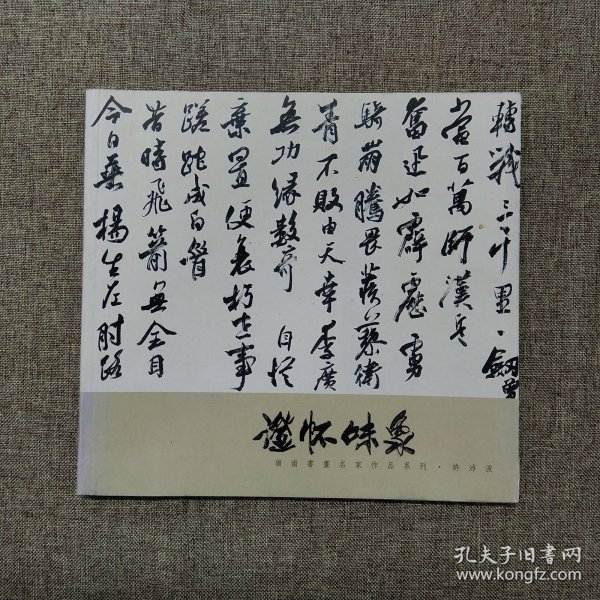 轉戰三千里一劍曾
當百萬師漢兵
奮迅如霹靂虜
騎崩騰畏蒺藜衛
青不敗由天幸李廣
無功緣數奇自從
棄置便衰朽世事
蹉跎成白首
昔時飛箭無全目
今日垂楊生左肘路
澄怀味象
嶺南書畫名家作品系列·許沛波
孔夫子旧书网
www.kongfz.com